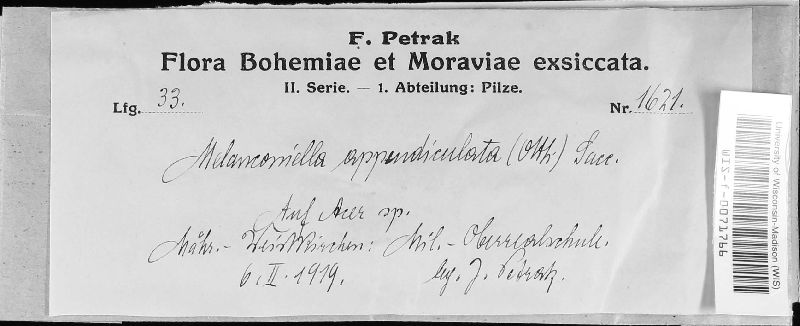 F. Petrak
Flora Bohemiae et Moraviae exsiccata.
II. Serie. — 1. Abteilung: Pilze.
Lfg. 33. Nr. 1621.
Melanconiella appendiculata (Otth.) Sacc.
Auf Acer sp.
Mähr.- Weisskirchen: Mil.- Oberrealschule.
6. II. 1919. leg. J. Petrak.
University of Wisconsin-Madison (WIS)
WIS-f-0071766